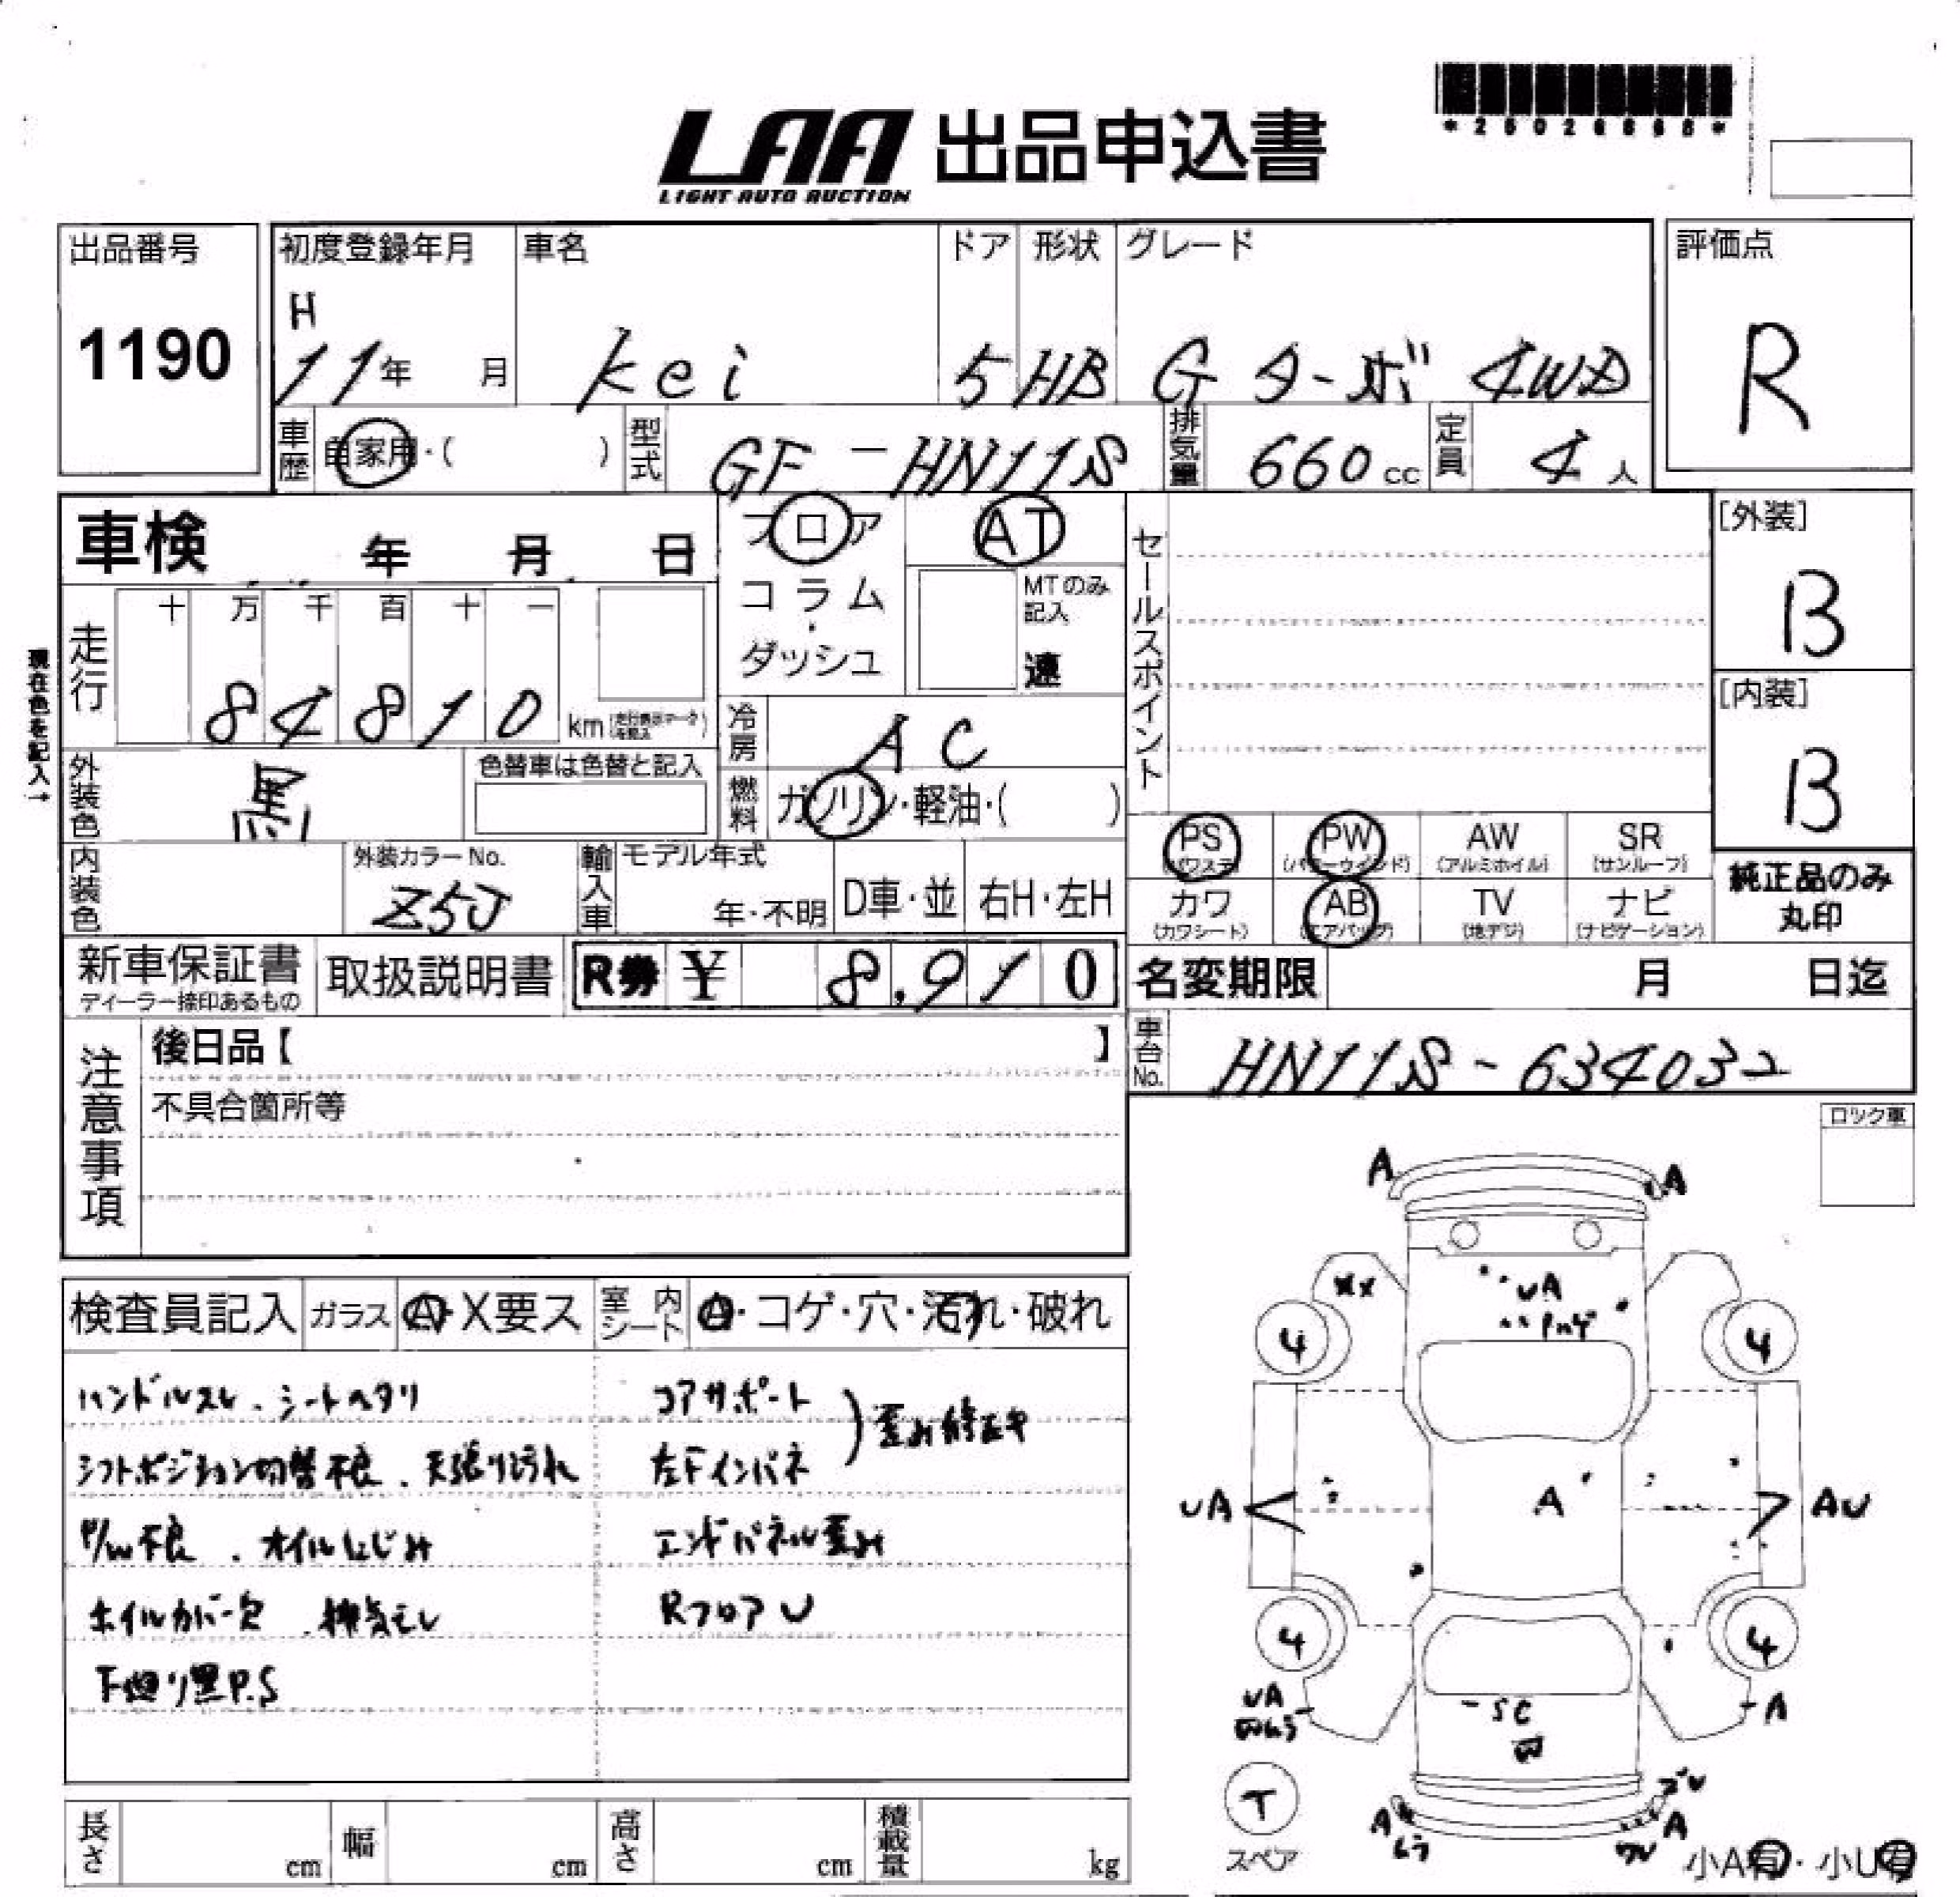 *25026868*
LAA 出品申込書
LIGHT AUTO AUCTION
出品番号 1190
初度登録年月 H 11年 月
車名 kei
ドア 5
形状 HB
グレード Gターボ 4WD
評価点 R
車歴 自家用・( )
型式 GF-HN11S
排気量 660cc
定員 4人
車検 年 月 日
フロア
コラム
ダッシュ
AT
MTのみ記入
速
セールスポイント
[外装] B
[内装] B
現在色を記入→
走行 十 万 千 百 十 一
84810 km
冷房 AC
外装色 黒
色替車は色替と記入
燃料 ガソリン・軽油・( )
PS (パワステ)
PW (パワーウインド)
AW (アルミホイル)
SR (サンルーフ)
内装色
外装カラーNo. Z5J
輸入車
モデル年式 年・不明
D車・並
右H・左H
カワ (カワシート)
AB (エアバッグ)
TV (地デジ)
ナビ (ナビゲーション)
純正品のみ丸印
新車保証書
ディーラー捺印あるもの
取扱説明書
R券 ¥ 8,910
名変期限 月 日迄
車台No. HN11S-634032
注意事項
後日品【 】
不具合箇所等
ロック車
検査員記入
ガラス A・X要ス
室内シート A・コゲ・穴・汚れ・破れ
ハンドルスレ、シートヘタリ
シフトポジション切替不良、天張り汚れ
P/W不良、オイルにじみ
ホイルカバー欠、排気モレ
下廻り黒P.S
コアサポート
左Fインパネ
歪み修正キ
エンドパネル歪み
RフロアU
A A
XX UA
4 4
UA A AU
4 4
UA SC A
凹
T
スペア
A A
小A有・小U有
長さ cm
幅 cm
高さ cm
積載量 kg